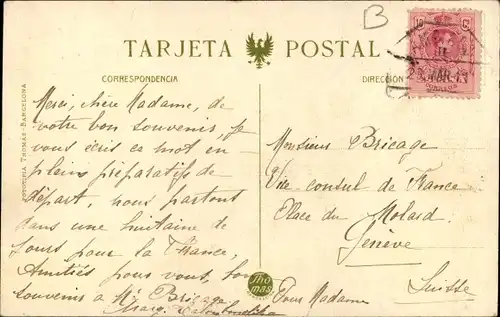 B
TARJETA POSTAL
CORRESPONDENCIA
DIRECCION
Merci, chère Madame, de
votre bon souvenir, je
vous écris ce mot en
pleins préparatifs de
départ, nous partons
dans une huitaine de
jours pour la France,
Amitiés pour vous, bon
souvenir à Mr Bricage
Marg.
Monsieur Bricage
Vice-consul de France
Place du Molard
Genève
Suisse
Pour Madame
FOTOTIPIA THOMAS-BARCELONA
Thomas
10 Cs
CORREOS
MAR 13